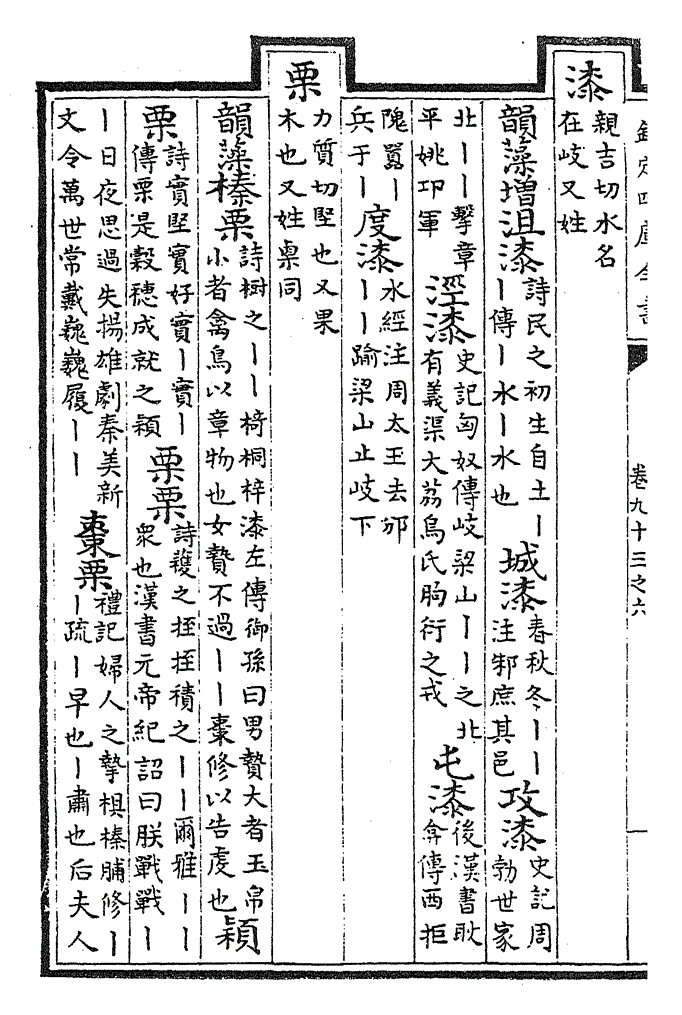 欽定四庫全書
卷九十三之六
漆
親吉切水名
在岐又姓
韻藻增沮漆
詩民之初生自土丨
傳丨水丨水也
城漆
春秋冬丨丨
注邾庶其邑
攻漆
史記周
勃世家
北丨丨擊章
平姚卭軍
涇漆
史記匈奴傳岐梁山丨丨之北
有義渠大荔烏氏朐衍之戎
屯漆
後漢書耿
弇傳西拒
隗囂丨
兵于丨
度漆
水經注周太王去邠
丨丨踰梁山止岐下
栗
力質切堅也又果
木也又姓㮚同
韻藻榛栗
詩樹之丨丨椅桐梓漆左傳御孫曰男贄大者玉帛
小者禽鳥以章物也女贄不過丨丨棗修以告虔也
穎
栗
詩實堅實好實丨實丨
傳栗是穀穗成就之穎
栗栗
詩穫之挃挃積之丨丨爾雅丨丨
衆也漢書元帝紀詔曰朕戰戰丨
丨日夜思過失揚雄劇秦美新
文令萬世常戴巍巍履丨丨
棗栗
禮記婦人之摯椇榛脯修丨
丨疏丨早也丨肅也后夫人